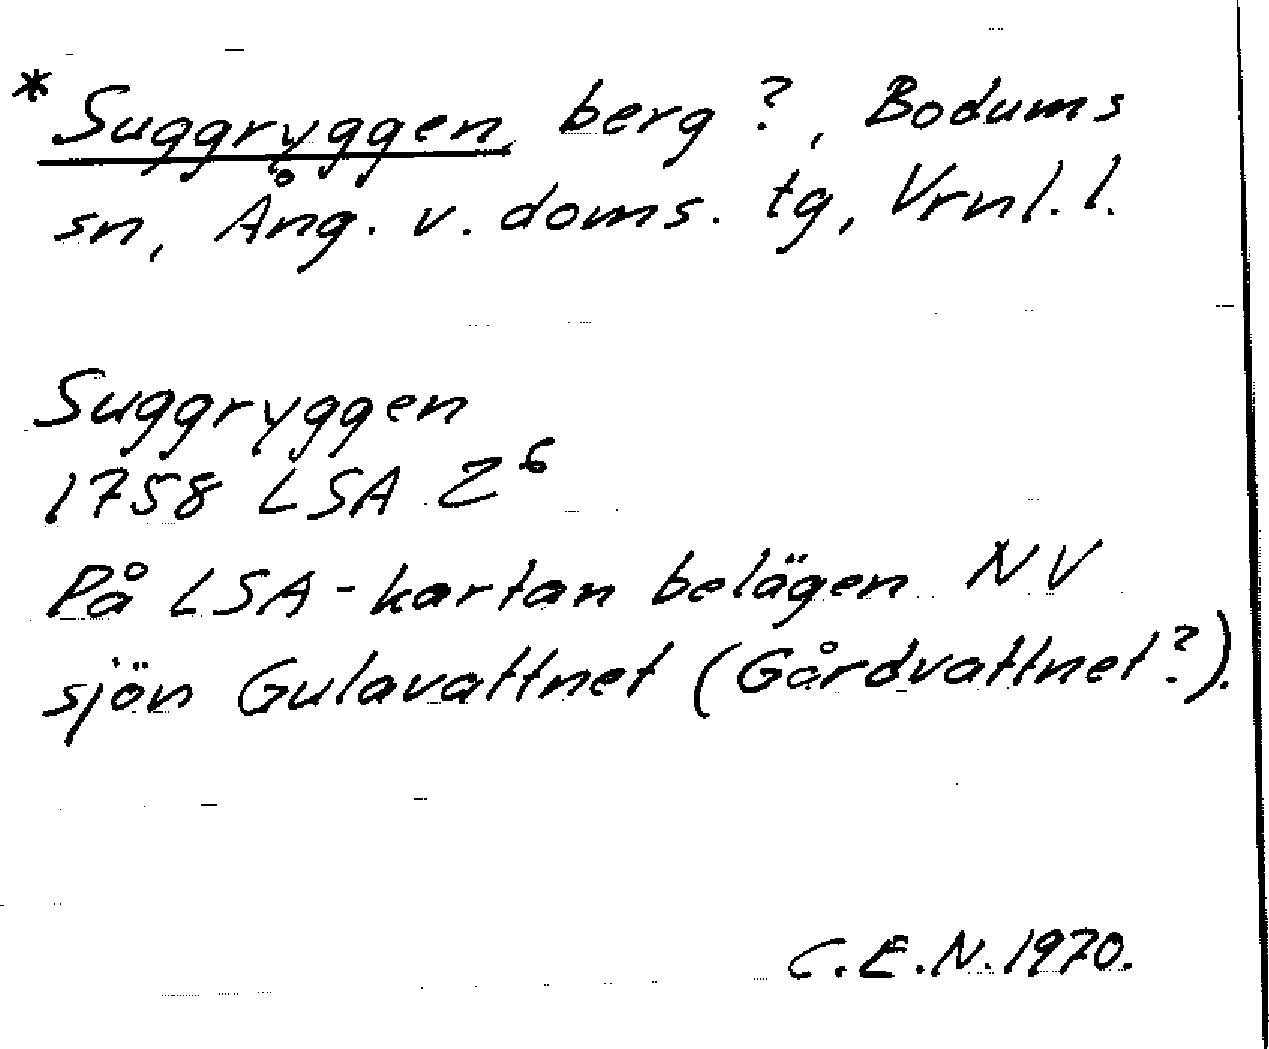 * Suggryggen, berg ?, Bodums
sn, Ång. v. doms. tg, Vrnl. l.
Suggryggen
1758 LSA Z⁶
På LSA-kartan belägen NV
sjön Gulavattnet (Gårdvattnet?).
C.E.N. 1970.